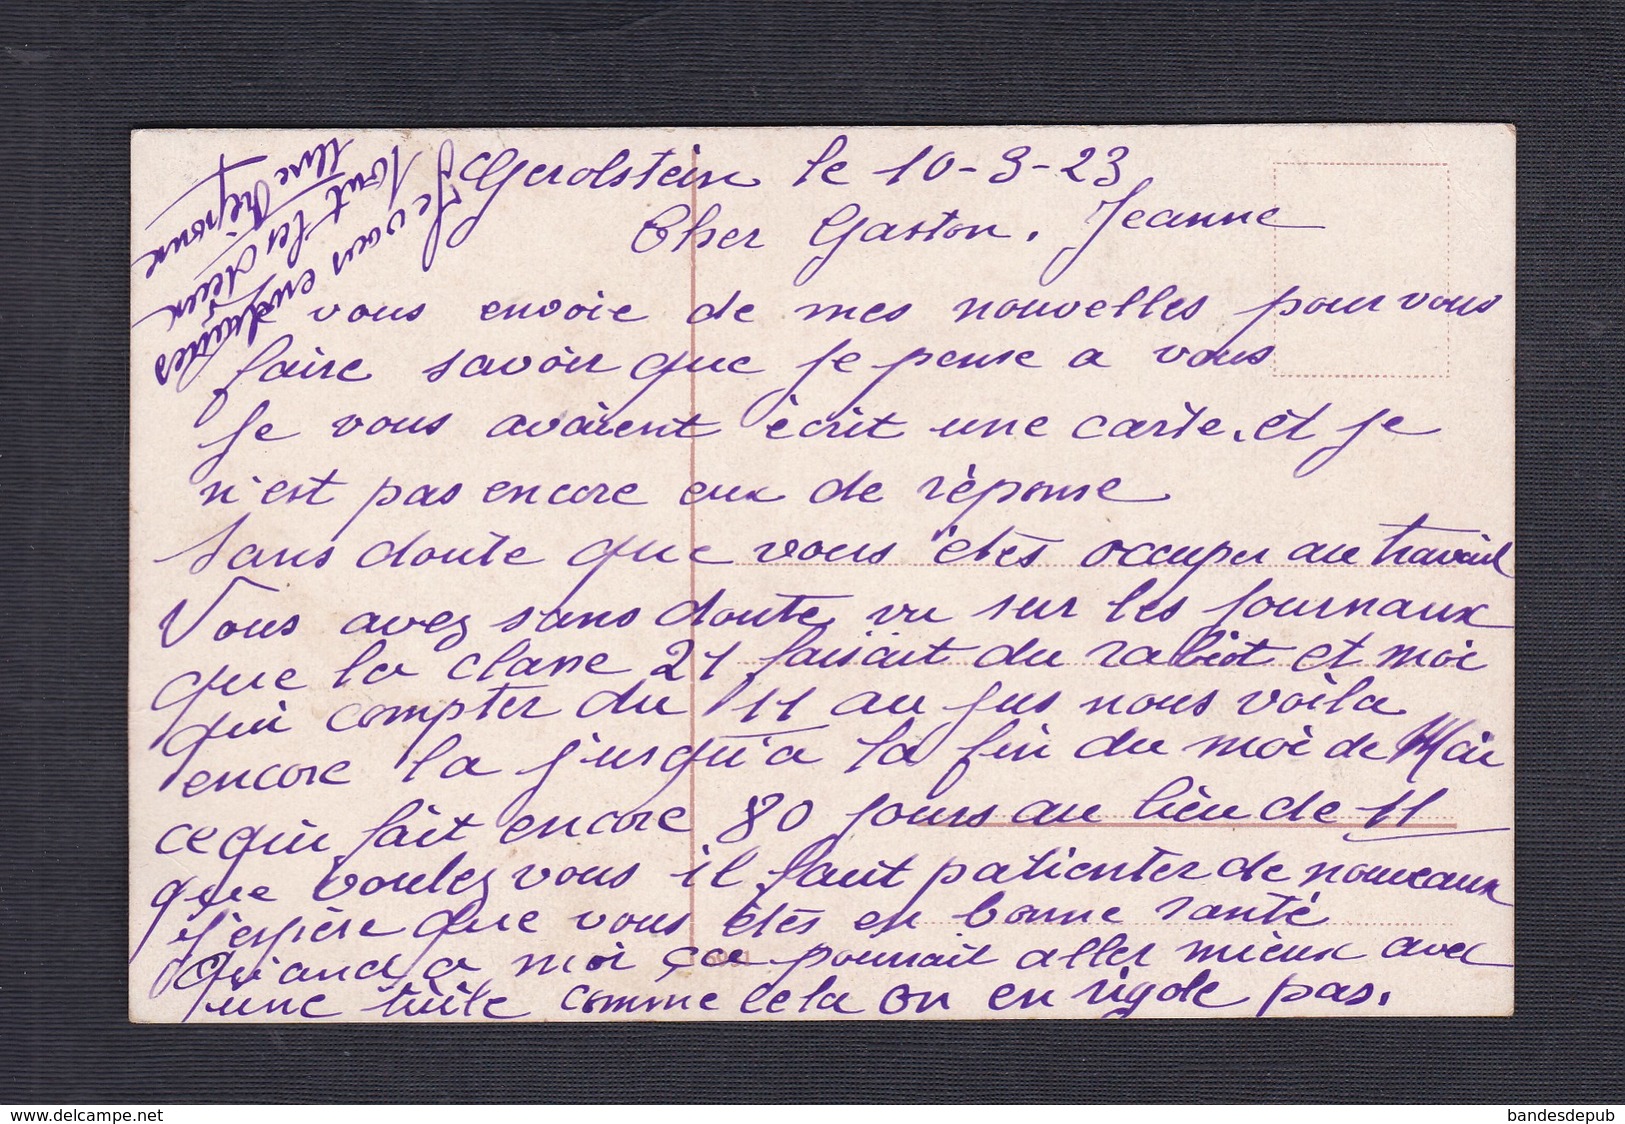 Gerolstein le 10-3-23
Cher Gaston. Jeanne
Je vous envoie de mes nouvelles pour vous
faire savoir que je pense a vous
je vous avaient écrit une carte. et je
n'est pas encore eux de réponse
Sans doute que vous êtes occuper au travail
Vous avez sans doute vu sur les journaux
que la classe 21 faisait du rabiot et moi
qui compter du 11 au jus nous voila
encore la jusqu'a la fin du moi de Mai
ce qui fait encore 80 jours au lieu de 11
que voulez vous il faut patienter de nouveaux
j'espère que vous êtes en bonne santé
Quand a moi ça pourrait aller mieux avec
une tuile comme cela on en rigole pas.
Je vous embrasse
tout les deux
Une réponse
www.delcampe.net
bandesdepub